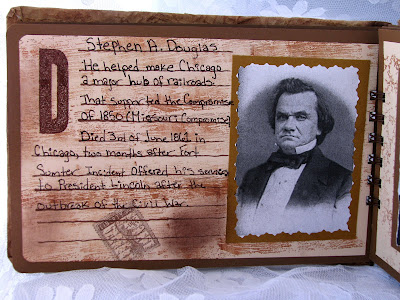 D
Stephen A. Douglas
He helped make Chicago
a major hub of railroads.
That supported the Compromise
Of 1850 (Missouri Compromise)
Died 3rd of June 1861 in
Chicago, two months after Fort
Sumter Incident Offered his services
to President Lincoln after the
outbreak of the Civil War